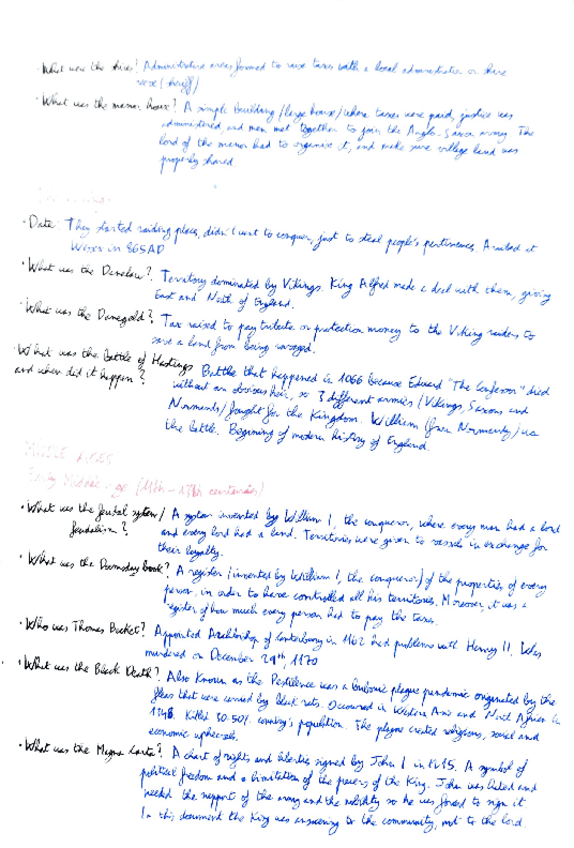 · What were the shires? Administrative areas formed to raise taxes with a local administrator or shire
reeve (sheriff)
· What was the manor house? A simple building (large house) where taxes were paid, justice was
administered, and men met together to join the Anglo-Saxon army. The
lord of the manor had to organise it, and make sure village land was
properly shared
· Date: They started raiding places, didn't want to conquer, just to steal people's pertinences. Arrived at
Wessex in 865AD
· What was the Danelaw? Territory dominated by Vikings. King Alfred made a deal with them, giving
East and North of England.
· What was the Danegold? Tax raised to pay tribute or protection money to the Viking raiders to
save a land from being ravaged.
· What was the Battle of Hastings
and when did it happen? Battle that happened in 1066 because Edward "The Confessor" died
without an obvious heir, so 3 different armies (Vikings, Saxons and
Normands) fought for the Kingdom. William (from Normandy) won
the battle. Begining of modern history of England.
MIDDLE AGES
Early Middle Age (11th - 13th centuries)
· What was the feudal system/
feudalism? A system invented by William I, the conqueror, where every man had a lord
and every lord had a land. Territories were given to vassals in exchange for
their loyalty.
· What was the Doomsday book? A register (invented by William I, the conqueror) of the properties of every
person, in order to have controlled all his territories. Moreover, it was a
register of how much every person had to pay the taxes.
· Who was Thomas Becket? Appointed Archbishop of Canterbury in 1162 had problems with Henry II. Was
murdered on December 29th, 1170
· What was the Black Death? Also Known as the Pestilence was a bubonic plague pandemic originated by the
fleas that were carried by black rats. Occurred in Western Asia and North African in
1348. Killed 30-50% country's population. The plague created religious, social and
economic upheavals.
· What was the Magna Carta? A chart of rights and liberties signed by John I in 1215. A symbol of
political freedom and a limitation of the powers of the King. John was hated and
needed the support of the army and the nobility so he was forced to sign it
In this document the King was answering to the community, not to the lord.